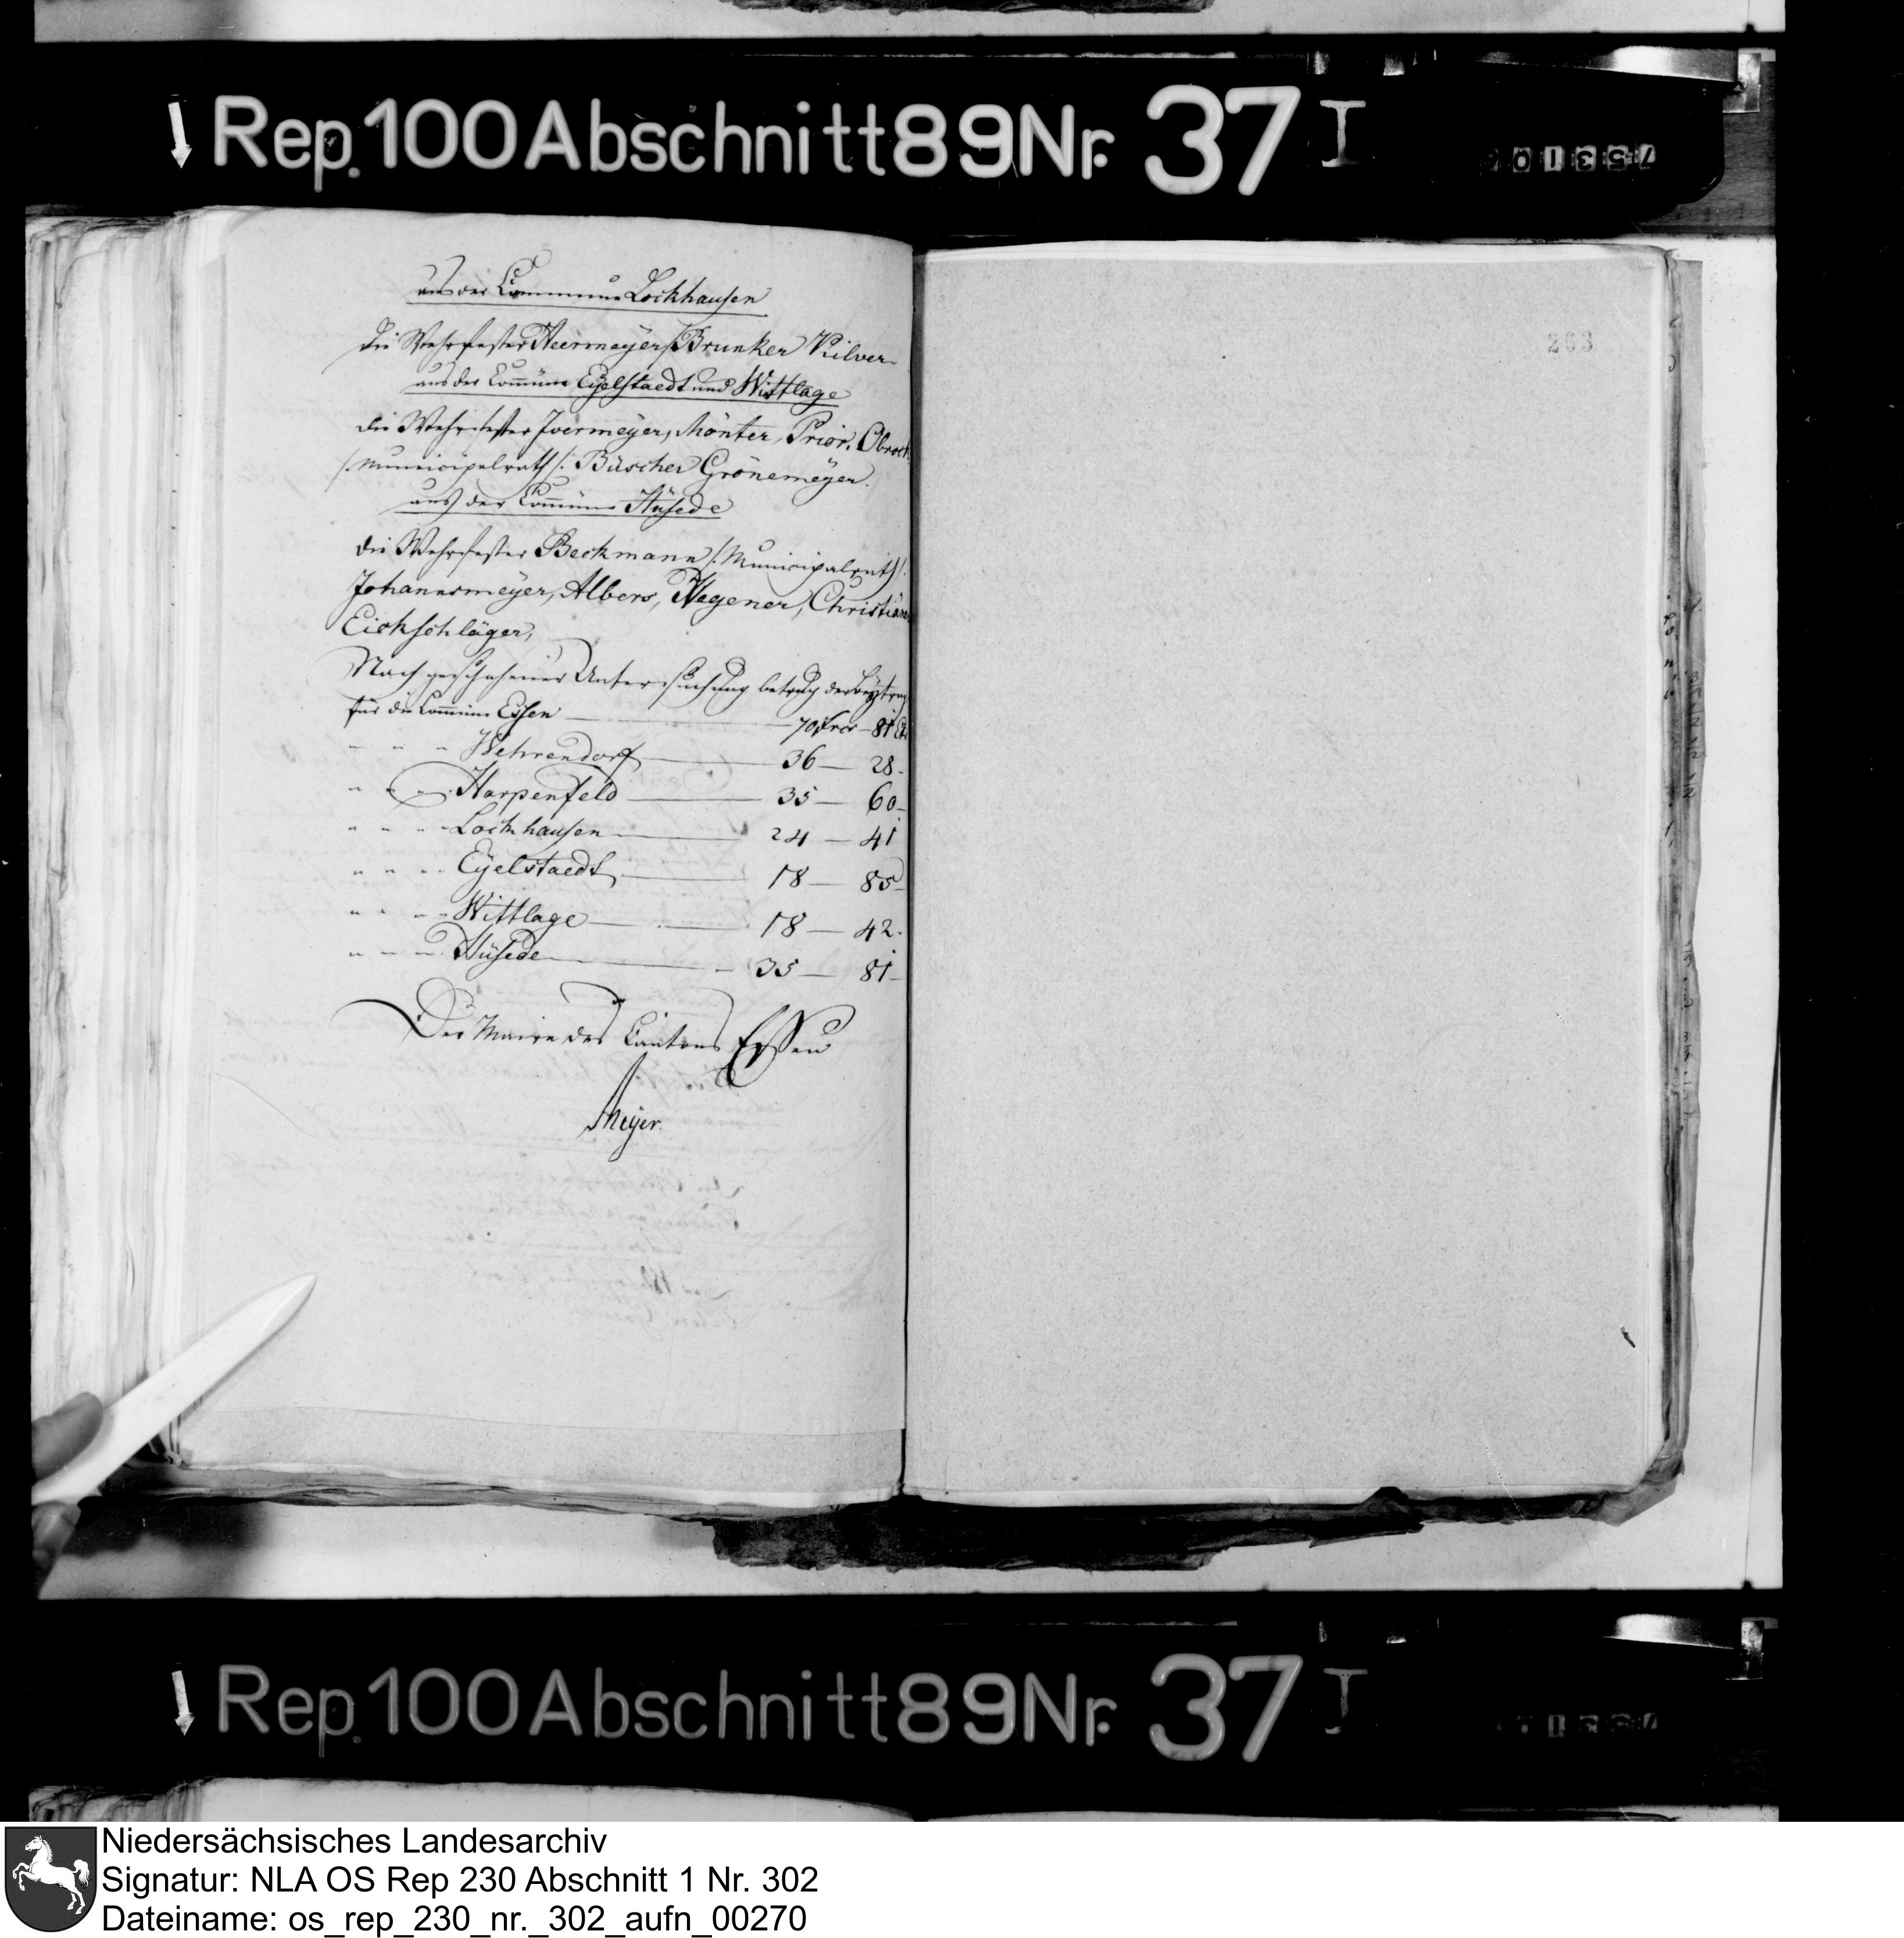 Rep. 100 Abschnitt 89 Nr. 37 I
aus der Commune Lockhausen
die Wehrfester Heermeyer Brunker Kilver
aus der Com̄une Eÿelstaedt und Wittlage
die Wehrfester Ivermeÿer, Mönter, Prior, Obrock
/: Municipalrath :/ Büscher Grönemeÿer.
aus der Com̄une Hüsede
die Wehrfester Beckmann /: Municipalrath :/
Johannsmeÿer, Albers, Wegener, Christian
Eickschläger,
Nach geschehener Untersuchung betrug der Beÿtrag
für die Com̄une Essen — 70 Frcs — 81 Ct
" " " Wehrendorf — 36 — 28.
" " " Harpenfeld — 35 — 60
" " " Lockhausen — 24 — 41
" " " Eÿelstaedt — 18 — 85
" " " Wittlage — 18 — 42.
" " " Hüsede — 35 — 81
Der Maire des Cantons Essen
Meÿer.
203
Rep. 100 Abschnitt 89 Nr. 37 I
Niedersächsisches Landesarchiv
Signatur: NLA OS Rep 230 Abschnitt 1 Nr. 302
Dateiname: os_rep_230_nr._302_aufn_00270